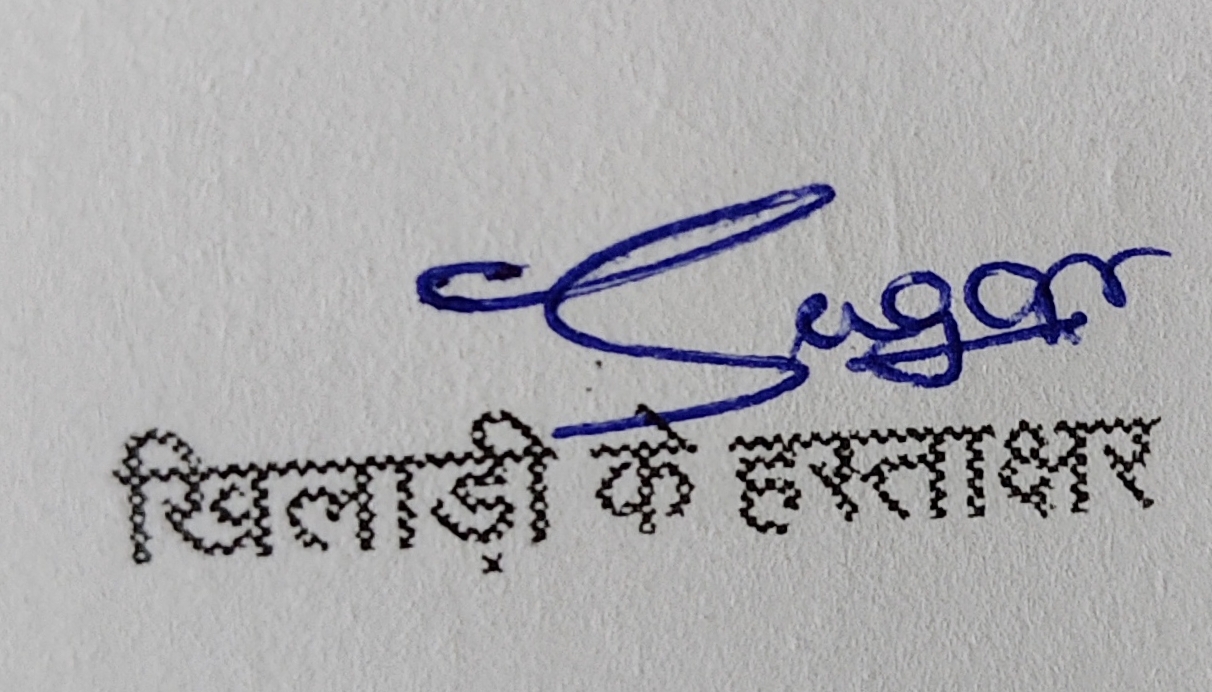 Sagar
खिलाड़ी के हस्ताक्षर